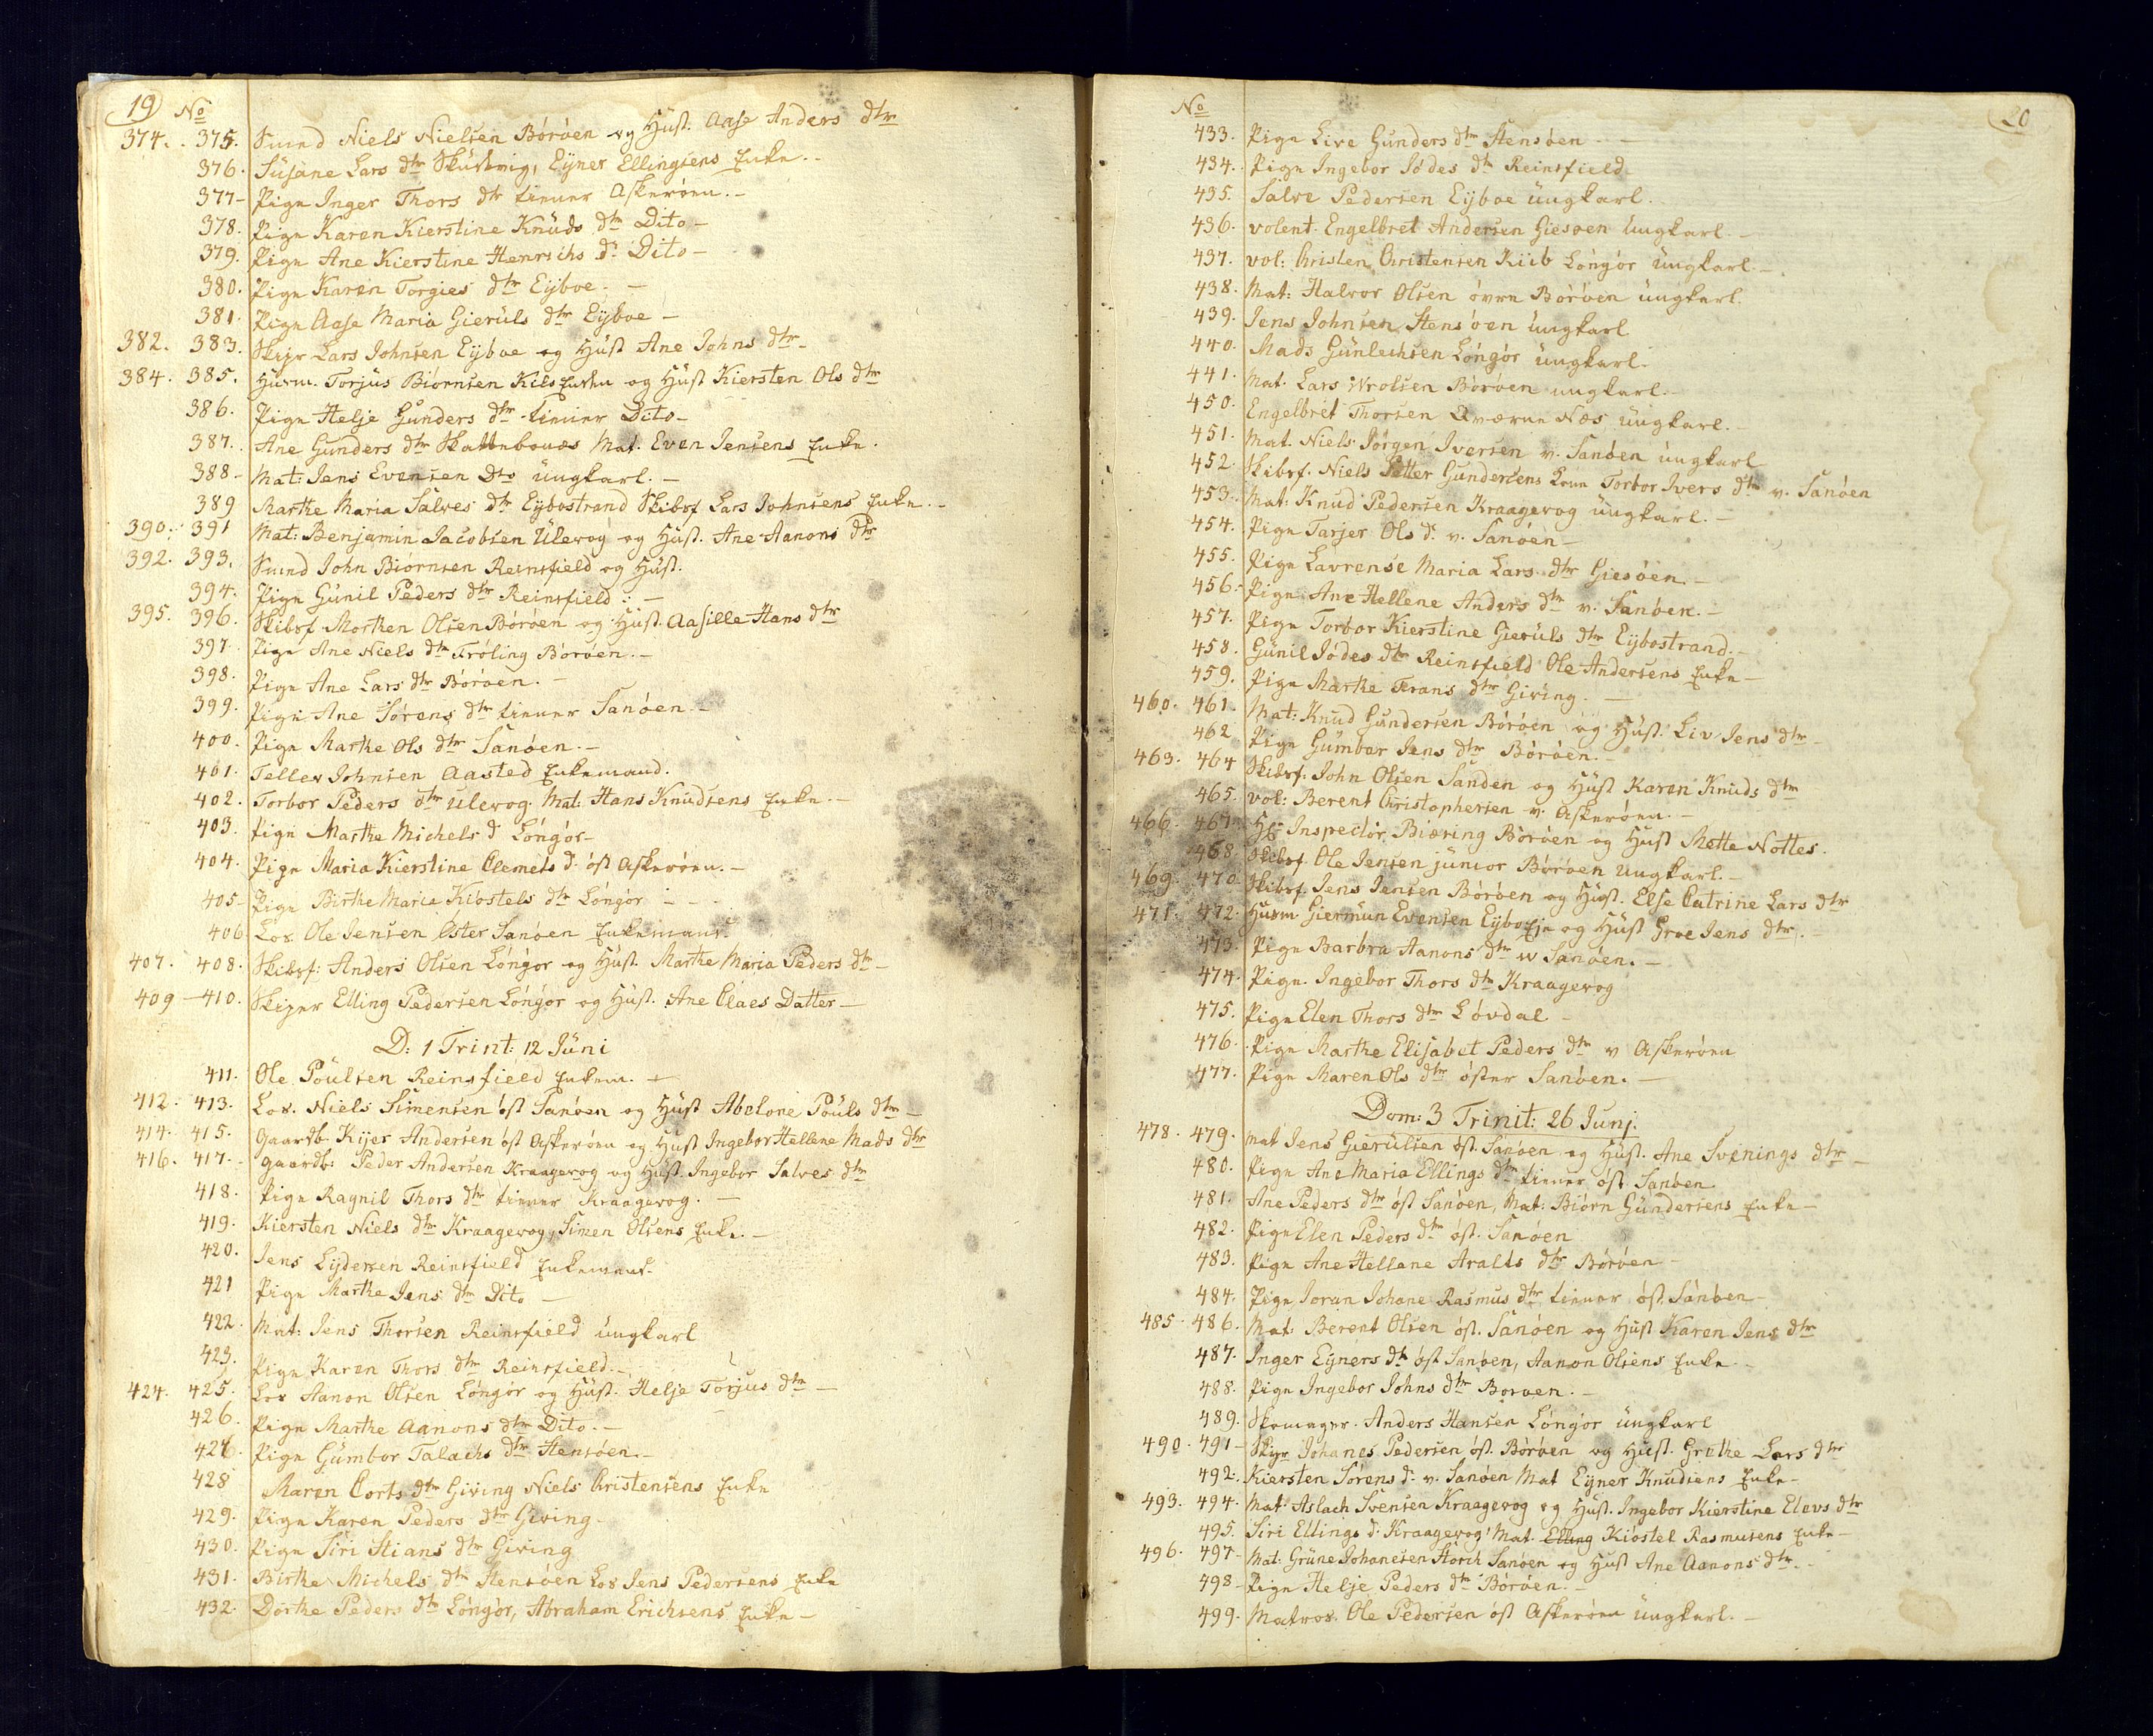 19 No
374. 375. Smed Niels Nielsen Börøen og Hust. Aase Anders dtr
376. Susane Lars dtr Eyner Ellingsens Enke.
377- Pige Inger Thors dtr tiener Askerøen.-
378. Pige Karen Kierstine Knüds dtr Dito-
379. Pige Ane Kierstine Henrichs dr Dito-
380. Pige Karen Torgies dtr Eyboe. -
381. Pige Aase Maria Gierüls dtr Eyboe -
382. 383. Skipr Lars Johnsen Eyboe og Hüst Ane Johns dtr-
384. 385. Husm. Torjus Biörnsen og Hüst Kiersten Ols dtr
386. Pige Helje Gunders dtr tiener Dito-
387. Ane Gunders dtr Skattebonæs Mat. Even Jensens Enke.
388- Mat: Jens Evensen Dto üngkarl.-
389 Marthe Maria Salves dtr Eybostrand Skibsf Lars Johnsens Enke.-
390. 391 Mat: Benjamin Jacobsen Ülevog og Hust. Ane Aanons dtr
392. 393. Smed John Biörnsen Reinsfield og Hüst.
394. Pige Günil Peders dtr Reinsfield.-
395. 396. Skibsf. Morthen Olsen Börøen og Hüst. Aasille Hans dtr
397. Pige Ane Niels dtr Fröling Börøen.-
398. Pige Ane Lars dtr Börøen.-
399. Pige Ane Sörens dtr tiener Sanøen.-
400. Pige Marthe Ols dtr Sanøen.-
401. Tellev Johnsen Aasted Enkemand.
402. Torbor Peders dtr Ulevog. Mat: Hans Knudsens Enke.-
403. Pige Marthe Michels d Löngör-
404. Pige Maria Kierstine Clemets d. öst Askerøen.-
405- Pige Birthe Maria Kiöstels dtr Löngör -
406 Los. Ole Jensen Öster Sanøen Enkemand.
407. 408. Skibsf: Anders Olsen Löngör og Hüst. Marthe Maria Peders dtr-
409-410. Skiper Elling Pedersen Löngör og Hust. Ane Claes Datter-
D: 1 Trint: 12 Jüni
411. Ole Poülsen Reinsfield Enkem. -
412. 413. Los. Niels Simensen öst Sanøen og Hüst Abelone Pouls dtr-
414. 415. Gaardb. Kijer Andersen öst Askerøen og Hust Ingebor Hellene Mads dtr
416. 417. gaardb: Peder Andersen Kraagevog og Hust. Ingebor Salves dtr
418. Pige Ragnil Thors dtr tiener Kraagevog. -
419. Kiersten Niels dtr Kraagevog, Simen Olsens Enke.-
420. Jens Lydersen Reinsfield Enkemand.
421 Pige Marthe Jens dtr Dito -
422. Mat: Jens Thorsen Reinsfield üngkarl
423. Pige Karen Thors dtr Reinsfield.-
424. 425. Los Aanon Olsen Löngör og Hüst. Helje Torjus dtr -
426. Pige Marthe Aanons dtr Dito.-
427. Pige Gümbor Talachs dtr Stensøen.-
428 Maren Corts dtr Giving Niels Christensens Enke
429. Pige Karen Peders dtr Giving-
430. Pige Siri Stians dtr Giving
431. Birthe Michels dtr Stensøen Los Jens Pedersens Enke
432. Dorthe Peders dtr Löngör, Abraham Erichsens Enke -
No 20
433. Pige Live Gunders dtr Stensøen -
434. Pige Ingebor Jödes dtr Reinsfield
435. Salve Pedersen Eyboe üngkarl.
436. volent. Engelbret Andersen Giesøen üngkarl.-
437. vol: Christen Christensen Kiib Löngör üngkarl-.
438. Mat: Halvor Olsen övre Börøen üngkarl.
439. Jens Johnsen Stensøen üngkarl
440. Mads Günlechsen Löngör üngkarl.
441. Mat. Lars Wrolsen Börøen ungkarl.-
450. Engelbret Thorsen Qværne Næs üngkarl.-
451. Mat. Niels Jörgen Iversen v. Sanøen üngkarl
452. Skibsf. Niels Petter Gundersens Kone Torbor Ivers dtr v. Sanøen
453. Mat: Knud Pedersen Kraagevog üngkarl.-
454. Pige Tarjer Ols d. v. Sanøen-
455. Pige Lavrense Maria Lars dtr Giesøen.-
456- Pige Ane Hellene Anders dtr v. Sanøen.-
457. Pige Torbor Kierstine Gierüls dtr Eybostrand.-
458. Günil Jödes dtr Reinsfield Ole Andersens Enke-
459. Pige Marthe Frans dtr Giving. -
460. 461. Mat: Knud Gundersen Börøen og Hüst. Liv Jens dtr-
462 Pige Gümbor Jens dtr Börøen.-
463. 464 Skibsf: John Olsen Sanden og Hüst Karen Knuds dtr
465. vol: Berent Christophersen v. Askerøen.-
466. 467. Hr Inspectör Biæring Börøen og Hust Mette Nottes.
468. Skibsf. Ole Jensen jünior Börøen Ungkarl.-
469. 470. Skibsf. Jens Jensen Börøen og Hüst. Else Catrine Lars dtr
471. 472. Husm. Giermün Evensen Eyboeje og Hüst Groe Jens dtr.-
473. Pige Barbra Aanons dtr w Sanøen.-
474. Pige. Ingebor Thors dtr Kraagevog
475. Pige Elen Thors dtr Lövdal -
476. Pige Marthe Elisabet Peders dtr v Askerøen
477. Pige Maren Ols dtr öster Sanøen.-
Dom: 3 Trinit: 26 Junj.
478. 479. Mat Jens Gierülsen öst. Sanøen og Hüst. Ane Svenings dtr-
480. Pige Ane Maria Ellings dtr tiener öst Sanøen
481. Ane Peders dtr öst Sanøen, Mat: Biörn Gündersens Enke-
482. Pige Elen Peders dtr öst. Sanøen
483. Pige Ane Hellane Aralds dtr Börøen-
484. Pige Joran Johane Rasmus dtr tiener öst Sanøen-
485. 486. Mat: Berent Olsen öst. Sanøen og Hüst Karen Jens dtr
487. Inger Eyners dtr öst Sanøen, Aanon Olsens Enke.-
488. Pige Ingebor Johns dtr Borøen.-
489. Skomager. Anders Hansen Löngör üngkarl
490. 491- Skipr Johanes Pedersen öst. Börøen og Hust. Grethe Lars dtr
492. Kiersten Sörens d. v. Sanøen Mat Eyner Knudsens Enke-
493. 494. Mat: Aslach Svensen Kraagevog og Hust. Ingebor Kierstine Elevs dtr
495. Siri Ellings d. Kraagevog, Mat. Elling Kiöstel Rasmusens Enke-
496. 497- Mat: Grüne Johanesen Storch Sanøen og Hust Ane Aanons dtr.-
498- Pige Helje Peders dtr Börøen.-
499. Matros. Ole Pedersen öst Askerøen üngkarl.-